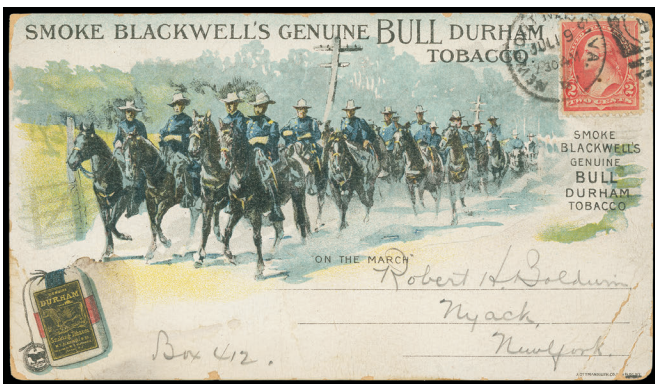 SMOKE BLACKWELL'S GENUINE BULL DURHAM
TOBACCO
JUL 19
VA.
2 2
TWO CENTS
SMOKE
BLACKWELL'S
GENUINE
BULL
DURHAM
TOBACCO
"ON THE MARCH"
DURHAM
Robert H. Goldwin
Nyack,
New York.
Box 412.